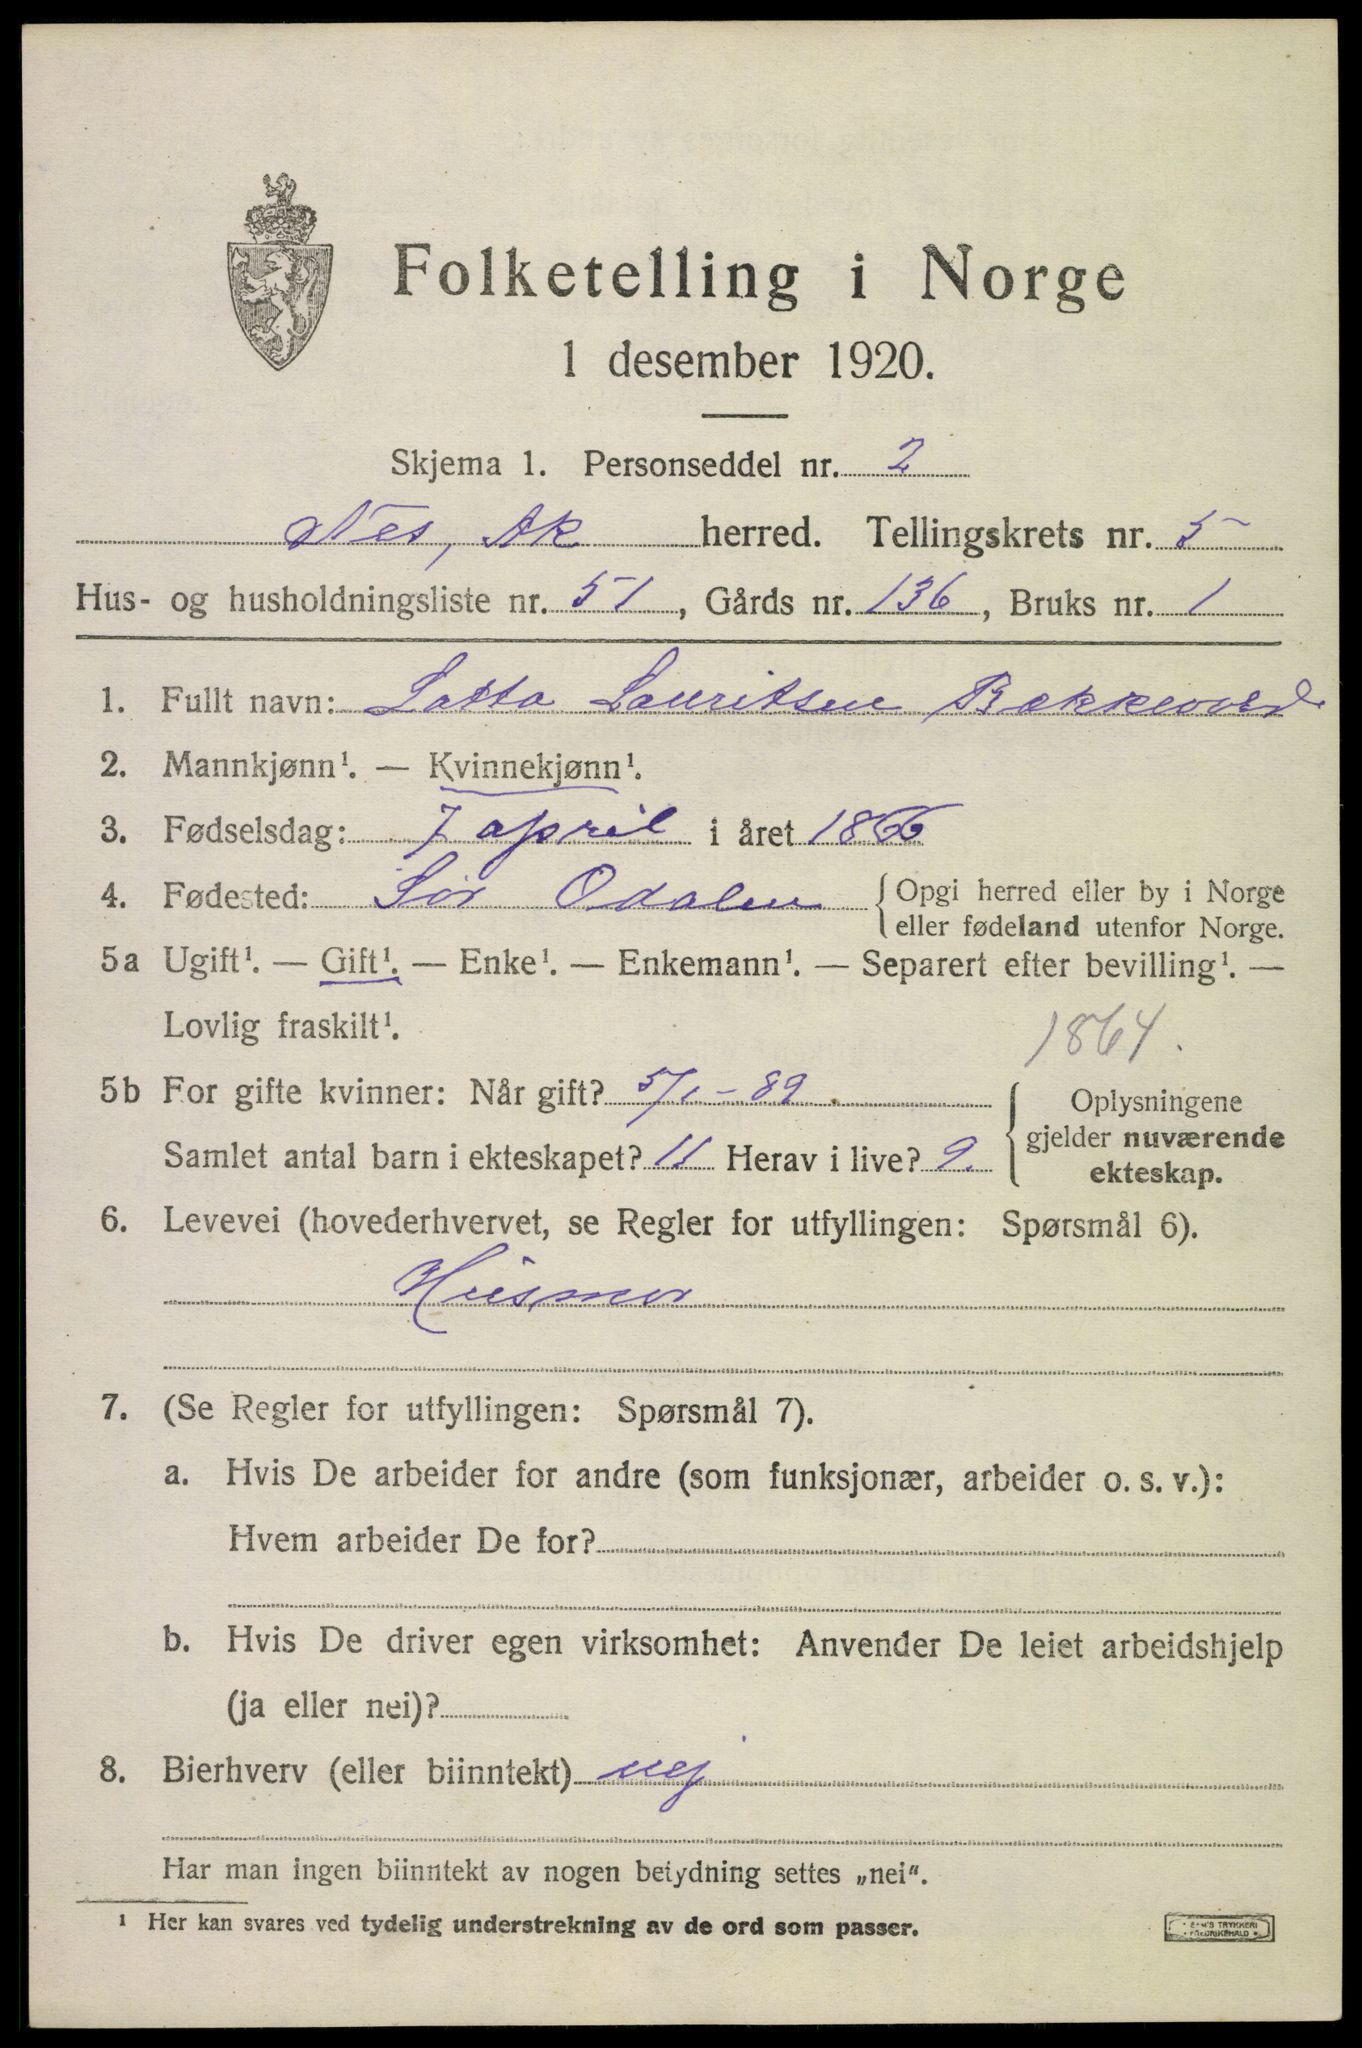 Folketelling i Norge
1 desember 1920.
Skjema 1. Personseddel nr. 2
Nes, Ak herred. Tellingskrets nr. 5
Hus- og husholdningsliste nr. 51, Gårds nr. 136, Bruks nr. 1
1. Fullt navn: Lauritsen
2. Mannkjønn¹. — Kvinnekjønn¹.
3. Fødselsdag: 7 april i året 1866
4. Fødested: Sör Odalen {Opgi herred eller by i Norge
eller fødeland utenfor Norge.
5a Ugift¹. — Gift¹. — Enke¹. — Enkemann¹. — Separert efter bevilling¹. —
Lovlig fraskilt¹.
1864.
5b For gifte kvinner: Når gift? 5/1-89
Samlet antal barn i ekteskapet? 11 Herav i live? 9.
Oplysningene
gjelder nuværende
ekteskap.
6. Levevei (hovederhvervet, se Regler for utfyllingen: Spørsmål 6).
Husmor
7. (Se Regler for utfyllingen: Spørsmål 7).
a. Hvis De arbeider for andre (som funksjonær, arbeider o. s. v.):
Hvem arbeider De for?
b. Hvis De driver egen virksomhet: Anvender De leiet arbeidshjelp
(ja eller nei)?
8. Bierhverv (eller biinntekt) nej
Har man ingen biinntekt av nogen betydning settes „nei".
¹ Her kan svares ved tydelig understrekning av de ord som passer.
TRYKKERI
FREDRIKSHALD